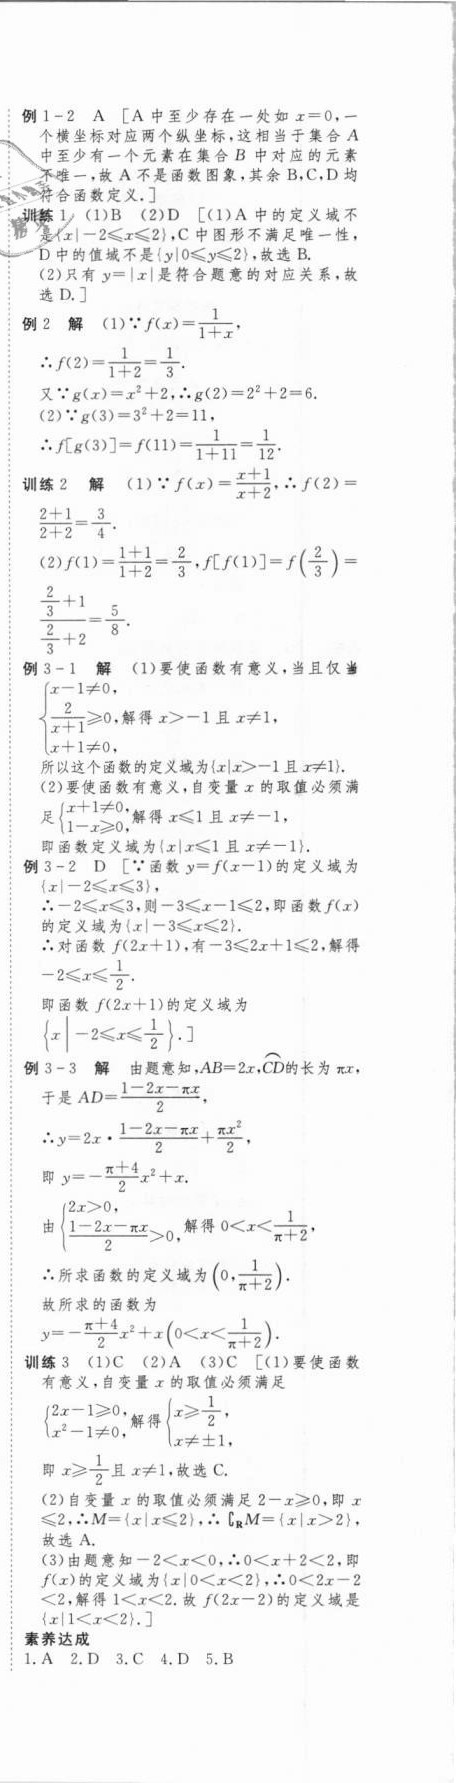 例1-2 A [A中至少存在一处如x=0,一
个横坐标对应两个纵坐标,这相当于集合A
中至少有一个元素在集合B中对应的元素
不唯一,故A不是函数图象,其余B,C,D均
符合函数定义.]
训练1 (1)B (2)D [(1)A中的定义域不
是{x|-2≤x≤2},C中图形不满足唯一性,
D中的值域不是{y|0≤y≤2},故选B.
(2)只有y=|x|是符合题意的对应关系,故
选D.]
例2 解 (1)∵f(x)=\frac{1}{1+x},
∴f(2)=\frac{1}{1+2}=\frac{1}{3}.
又∵g(x)=x²+2,∴g(2)=2²+2=6.
(2)∵g(3)=3²+2=11,
∴f[g(3)]=f(11)=\frac{1}{1+11}=\frac{1}{12}.
训练2 解 (1)∵f(x)=\frac{x+1}{x+2},∴f(2)=
\frac{2+1}{2+2}=\frac{3}{4}.
(2)f(1)=\frac{1+1}{1+2}=\frac{2}{3},f[f(1)]=f(\frac{2}{3})=
\frac{\frac{2}{3}+1}{\frac{2}{3}+2}=\frac{5}{8}.
例3-1 解 (1)要使函数有意义,当且仅当
{x-1≠0,
\frac{2}{x+1}≥0,解得x>-1且x≠1,
x+1≠0,
所以这个函数的定义域为{x|x>-1且x≠1}.
(2)要使函数有意义,自变量x的取值必须满
足{x+1≠0, 1-x≥0,解得x≤1且x≠-1,
即函数定义域为{x|x≤1且x≠-1}.
例3-2 D [∵函数y=f(x-1)的定义域为
{x|-2≤x≤3},
∴-2≤x≤3,则-3≤x-1≤2,即函数f(x)
的定义域为{x|-3≤x≤2}.
∴对函数f(2x+1),有-3≤2x+1≤2,解得
-2≤x≤\frac{1}{2}.
即函数f(2x+1)的定义域为
{x|-2≤x≤\frac{1}{2}}.]
例3-3 解 由题意知,AB=2x,\overset{⌒}{CD}的长为πx,
于是AD=\frac{1-2x-πx}{2},
∴y=2x·\frac{1-2x-πx}{2}+\frac{πx²}{2},
即y=-\frac{π+4}{2}x²+x.
由{2x>0, \frac{1-2x-πx}{2}>0,解得0<x<\frac{1}{π+2},
∴所求函数的定义域为(0,\frac{1}{π+2}).
故所求的函数为
y=-\frac{π+4}{2}x²+x(0<x<\frac{1}{π+2}).
训练3 (1)C (2)A (3)C [(1)要使函数
有意义,自变量x的取值必须满足
{2x-1≥0, x²-1≠0,解得{x≥\frac{1}{2}, x≠±1,
即x≥\frac{1}{2}且x≠1,故选C.
(2)自变量x的取值必须满足2-x≥0,即x
≤2,∴M={x|x≤2},∴∁_R M={x|x>2},
故选A.
(3)由题意知-2<x<0,∴0<x+2<2,即
f(x)的定义域为{x|0<x<2},∴0<2x-2
<2,解得1<x<2.故f(2x-2)的定义域是
{x|1<x<2}.]
素养达成
1.A 2.D 3.C 4.D 5.B